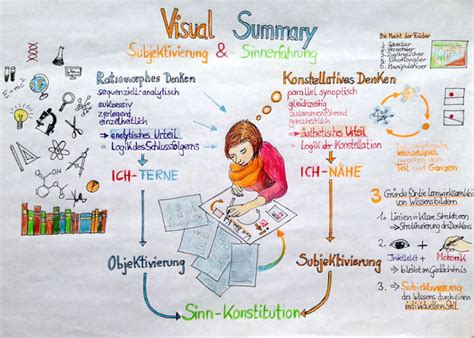 Visual Summary
Subjektivierung & Sinnerfahrung
Ratiomorphes Denken
sequenziell-analytisch
sukzessiv
zerlegend
einzelheitlich
→ analytisches Urteil
= Logik des Schlussfolgerns
ICH-FERNE
Objektivierung
Konstellatives Denken
parallel synoptisch
gleichzeitig
zusammenführend
ganzheitlich
→ ästhetisches Urteil
= Logik der Konstellation
ICH-NÄHE
Subjektivierung
Sinn-Konstitution
E=mc²
Die Macht der Bilder
1. Schneller
Wechselspiel
zwischen dem
Teil und Ganzen
3 Gründe für die Lernwirksamkeit
von Wissensbildern
1. Linien = Klare Strukturen
→ Strukturierung des Denkens
2.
Intellekt + Motorik
→ bleibt im Gedächtnis
3. → Subjektivierung
des Wissens durch einen
individuellen Stil